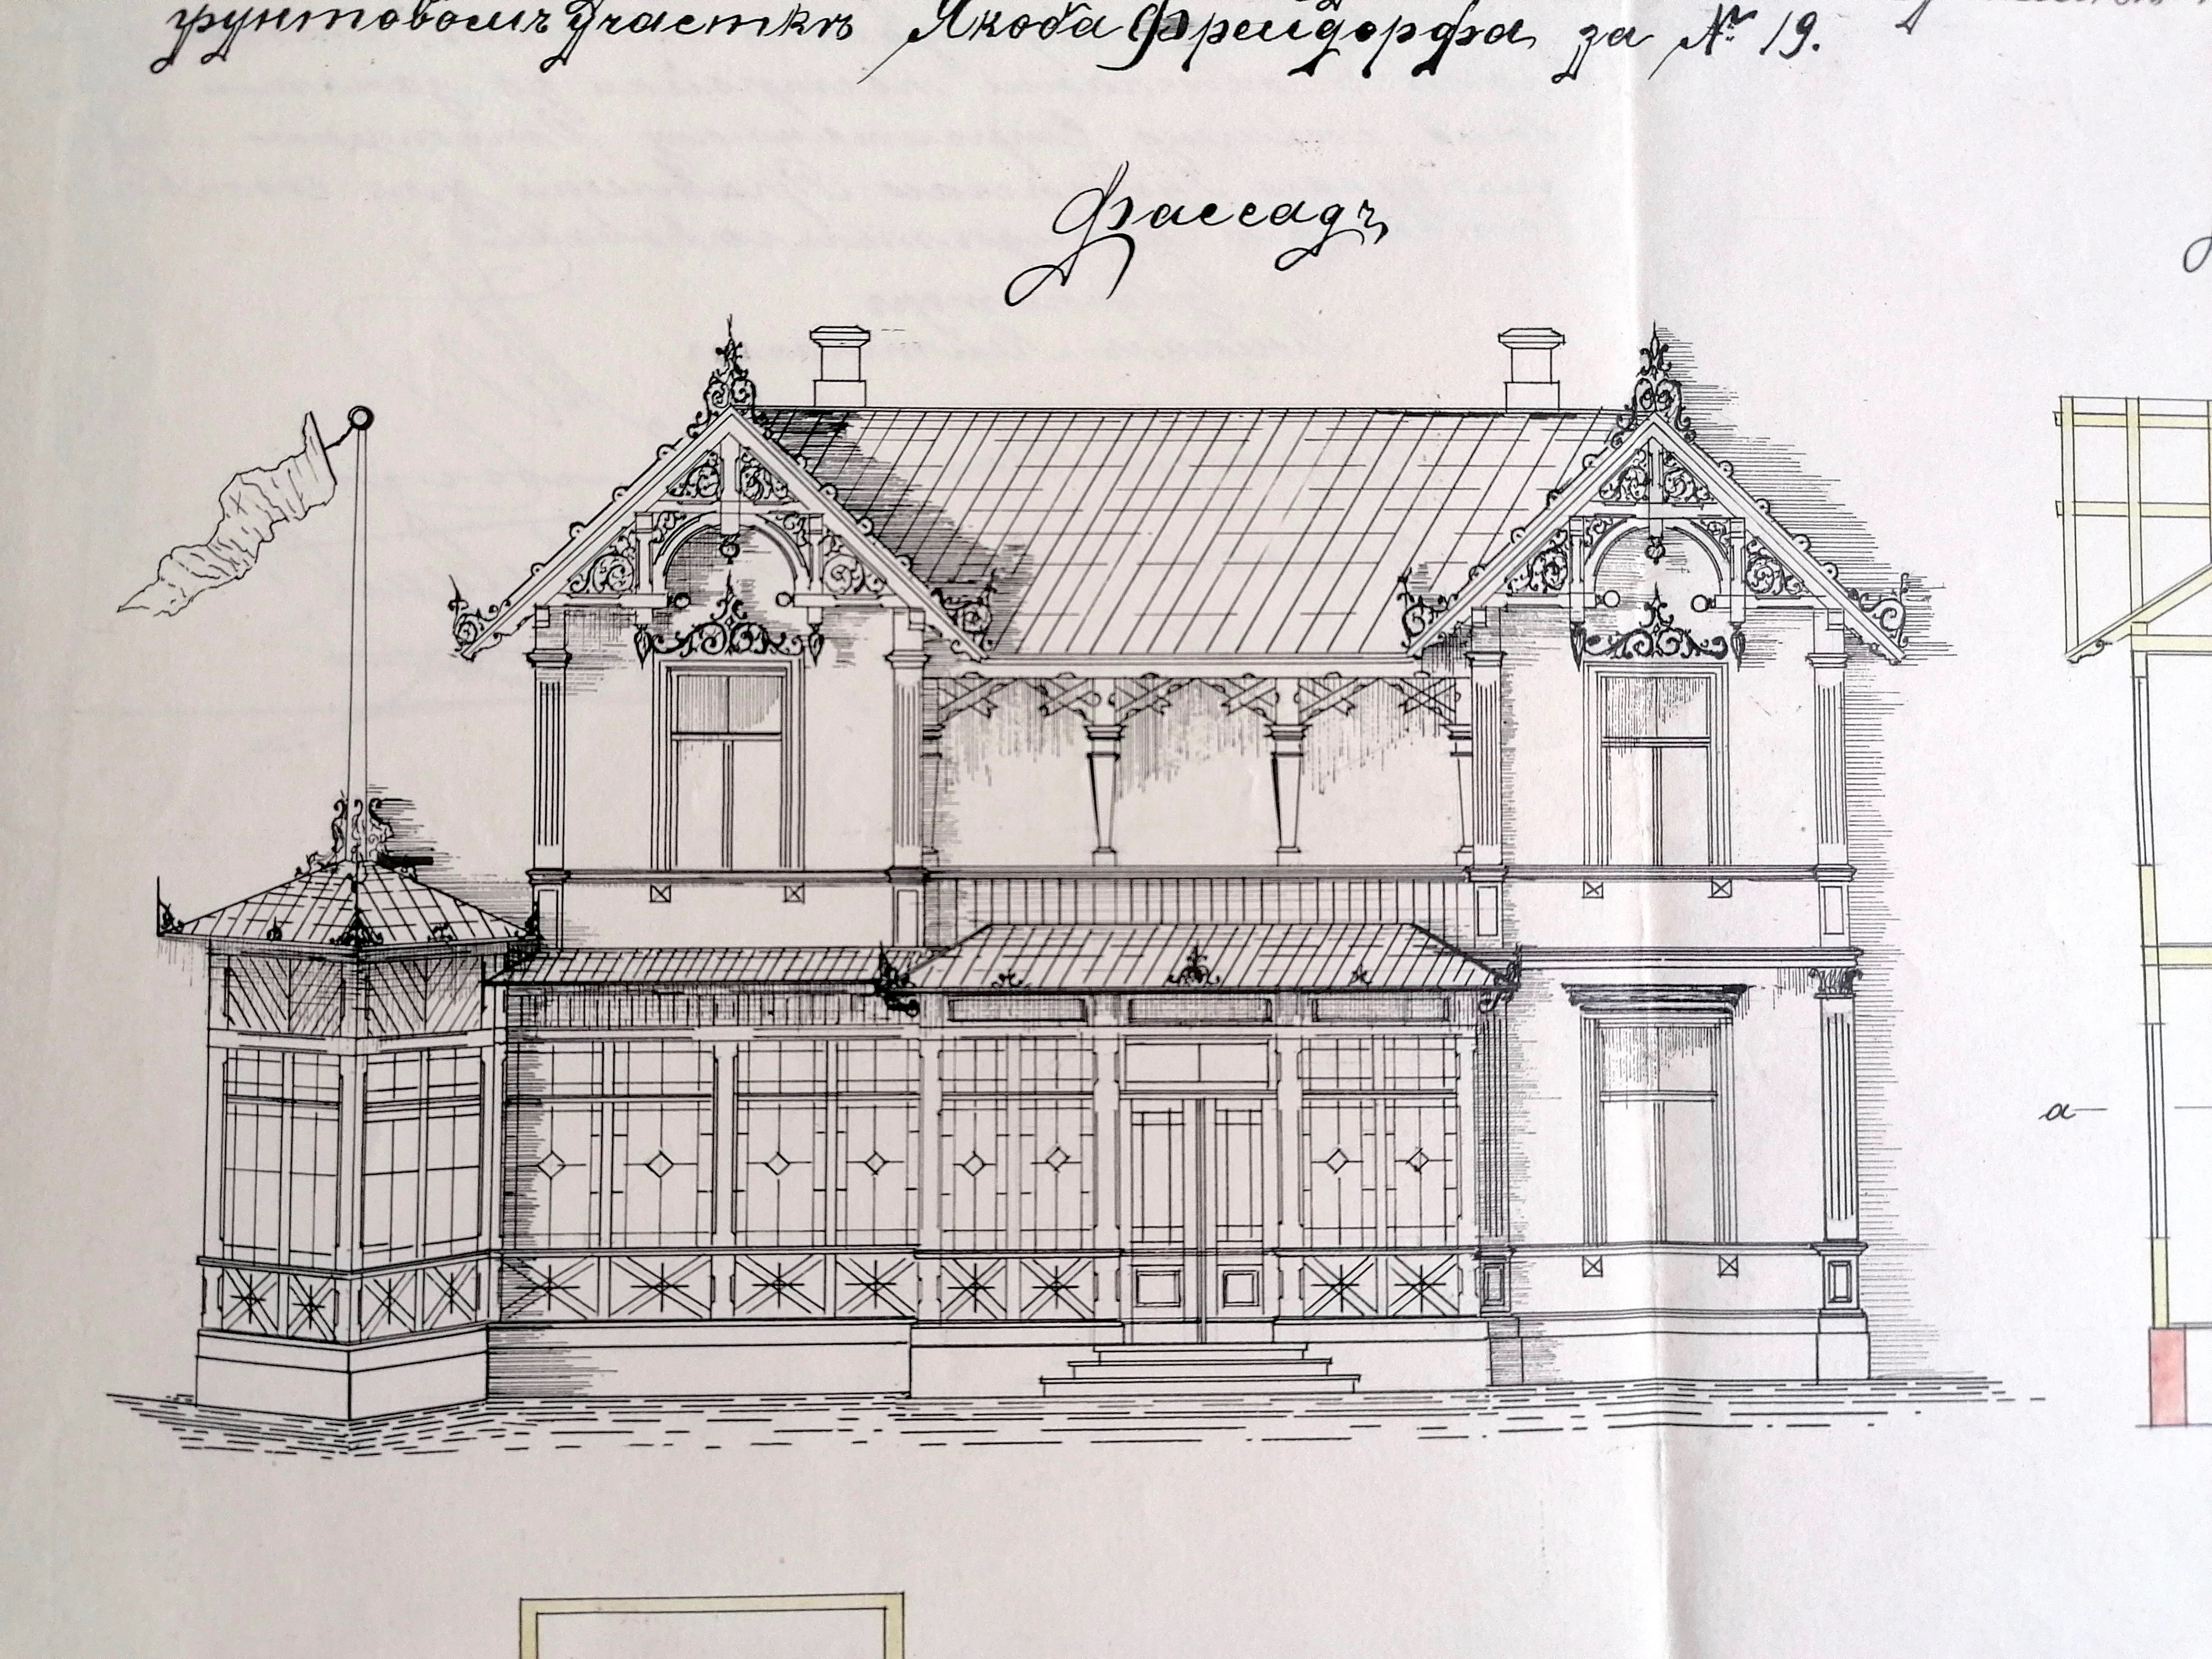 грунтовомъ участкѣ Якоба Фрейдорфа за № 19.
Фассадъ
а